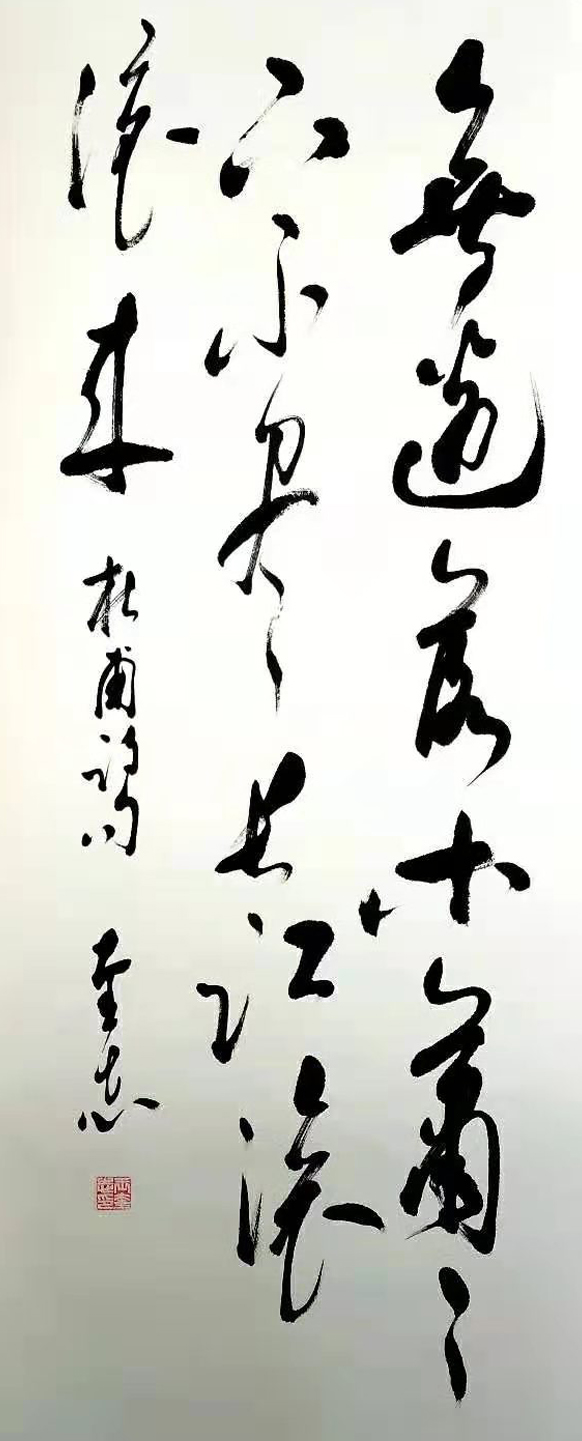 無邊落木蕭々
下不盡長江滾
滾來 杜甫詩句